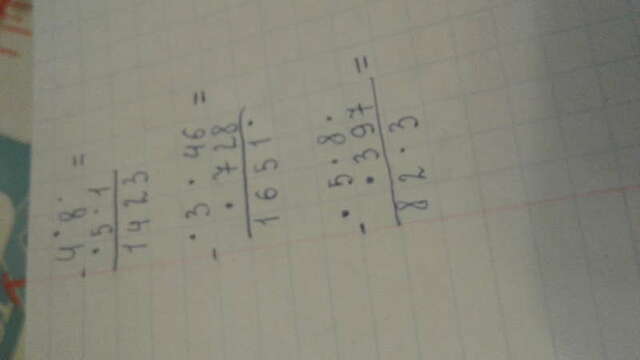 - 4 · 8 · =
· 5 · 1
1423
- · 3 · 46 =
· 728
1651 ·
- · 5 · 8 ·
· 397 =
82 · 3